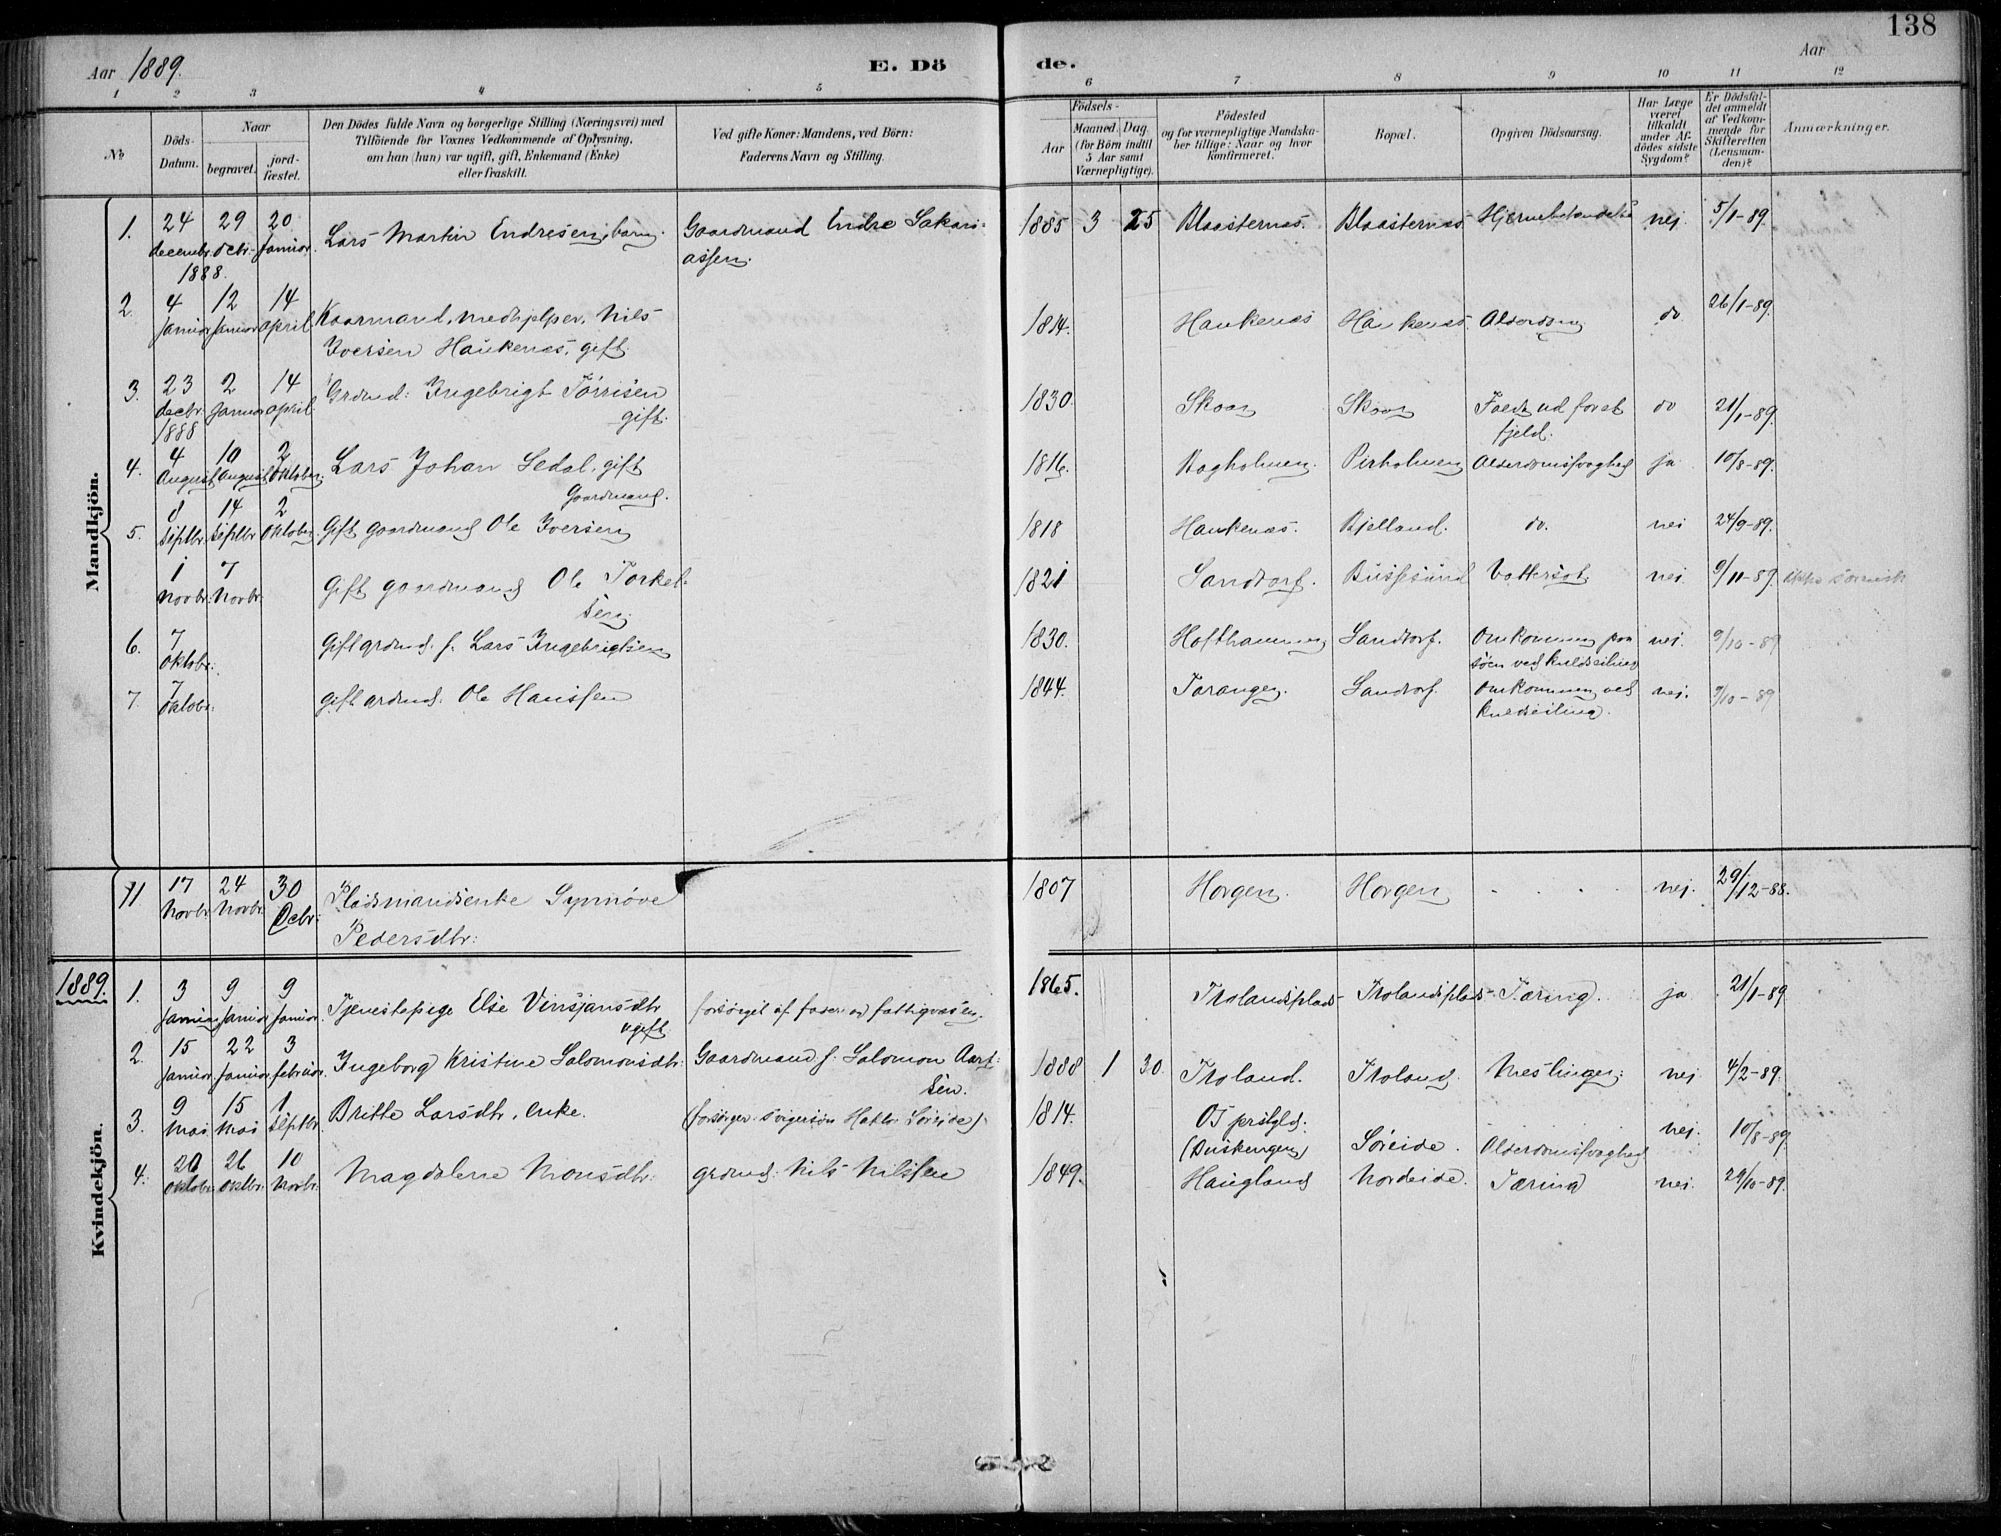 138
Aar 1889. E. Dö de. Aar
1 2 3 4 5 6 7 8 9 10 11 12
№
Döds-Datum.
Naar
begravet.
jord-fæstet.
Den Dödes fulde Navn og borgerlige Stilling (Næringsvei) med
Tilföiende for Voxnes Vedkommende af Oplysning,
om han (hun) var ugift, gift, Enkemand (Enke)
eller fraskilt.
Ved gifte Koner: Mandens, ved Börn:
Faderens Navn og Stilling.
Födsels-
Aar
Maaned. Dag.
(for Börn indtil
5 Aar samt
Værnepligtige).
Födested
og for værnepligtige Mandska-
ber tillige: Naar og hvor
konfirmeret.
Bopæl.
Opgiven Dödsaarsag.
Har Læge
været
tilkaldt
under Af-
dödes sidste
Sygdom?
Er Dödsfal-
det anmeldt
af Vedkom-
mende for
Skifteretten
(Lensman-
den)?
Anmærkninger.
Mandkjön.
1. 24 decembr. 1888. 29 decbr. 20 januar. Lars Martin Endresen, barn. Gaardmand Endre Sakari-
assen. 1885 3 25 Blaasternæs. Blaasternæs. nej. 5/1-89.
2. 4 januar 12 januar 14 april Kaarmand, medhjelper, Nils
Iversen Haukenæs, gift. 1814. Haukenæs Haukenæs. Alderdom do 26/1-89.
3. 23 decbr. 1888 2 januar 14 april Grdmd: Ingebrigt Törrisen
gift. 1830. Skaar Skaar Faldt ud for et
fjeld. do 21/1-89.
4. 4 August 10 August 2 Oktober. Lars Johan Sedal, gift
Gaardmand. 1816. Bagholmen. Pirholmen Alderdomssvaghed ja 10/8-89.
5. 8 Septbr. 14 Septbr. 2 Oktober Gift gaardmand Ole Iversen 1818 Haukenæs. Bjelland. do. nei 24/9-89.
1 Novbr. 7 Novbr. Gift gaardmand Ole Torkel-
sen 1821 Sandtorf. Bussesund Vattersot. nej. 9/11-89.
6. 7 Oktobr. Gift grdmd. f. Lars Ingebrigtsen 1830. Hofthammen Sandtorf. Omkommen paa
söen ved kuldseiling nej. 9/10-89
7. 7 Oktobr. gift grdmd. Ole Hanssen 1844. Tarangen. Sandtorf. Omkommen ved
kuldseiling. nej. 9/10-89
Kvindekjön.
11 17 Novbr. 24 Novbr. 30 Decbr. Pladsmandsenke Synnöve
Pedersdtr. 1807 Horgen. Horgen nej. 29/12-88.
1889.
1. 3 Januar 9 Januar 9 Januar. Tjenestepige Else Vinsjansdtr
ugift forsörget af fader og fattigvæsen. 1865. Trolandsplads Trolandsplads Tæring. ja 21/1-89
2. 15 Januar. 22 Januar. 3 februar. Ingeborg Kristine Salomonsdtr. Gaardmand f. Salomon Aart-
sen. 1888 1 30. Troland. Troland. Meslinger. nej 4/2-89.
3. 9 Mai 15 Mai 1 Septbr. Britte Larsdtr, enke. (forsörger svigersön Soreide). 1814. Os prstgld.
Söreide. Alderdomssvaghed nej. 10/8-89.
4. 20 Oktobr. 26 Oktbr. 10 Novbr. Magdalene Monsdtr. grdmd. Nils Nilssen 1849. Haugland Nordeide. Tæring nei. 29/10-89.